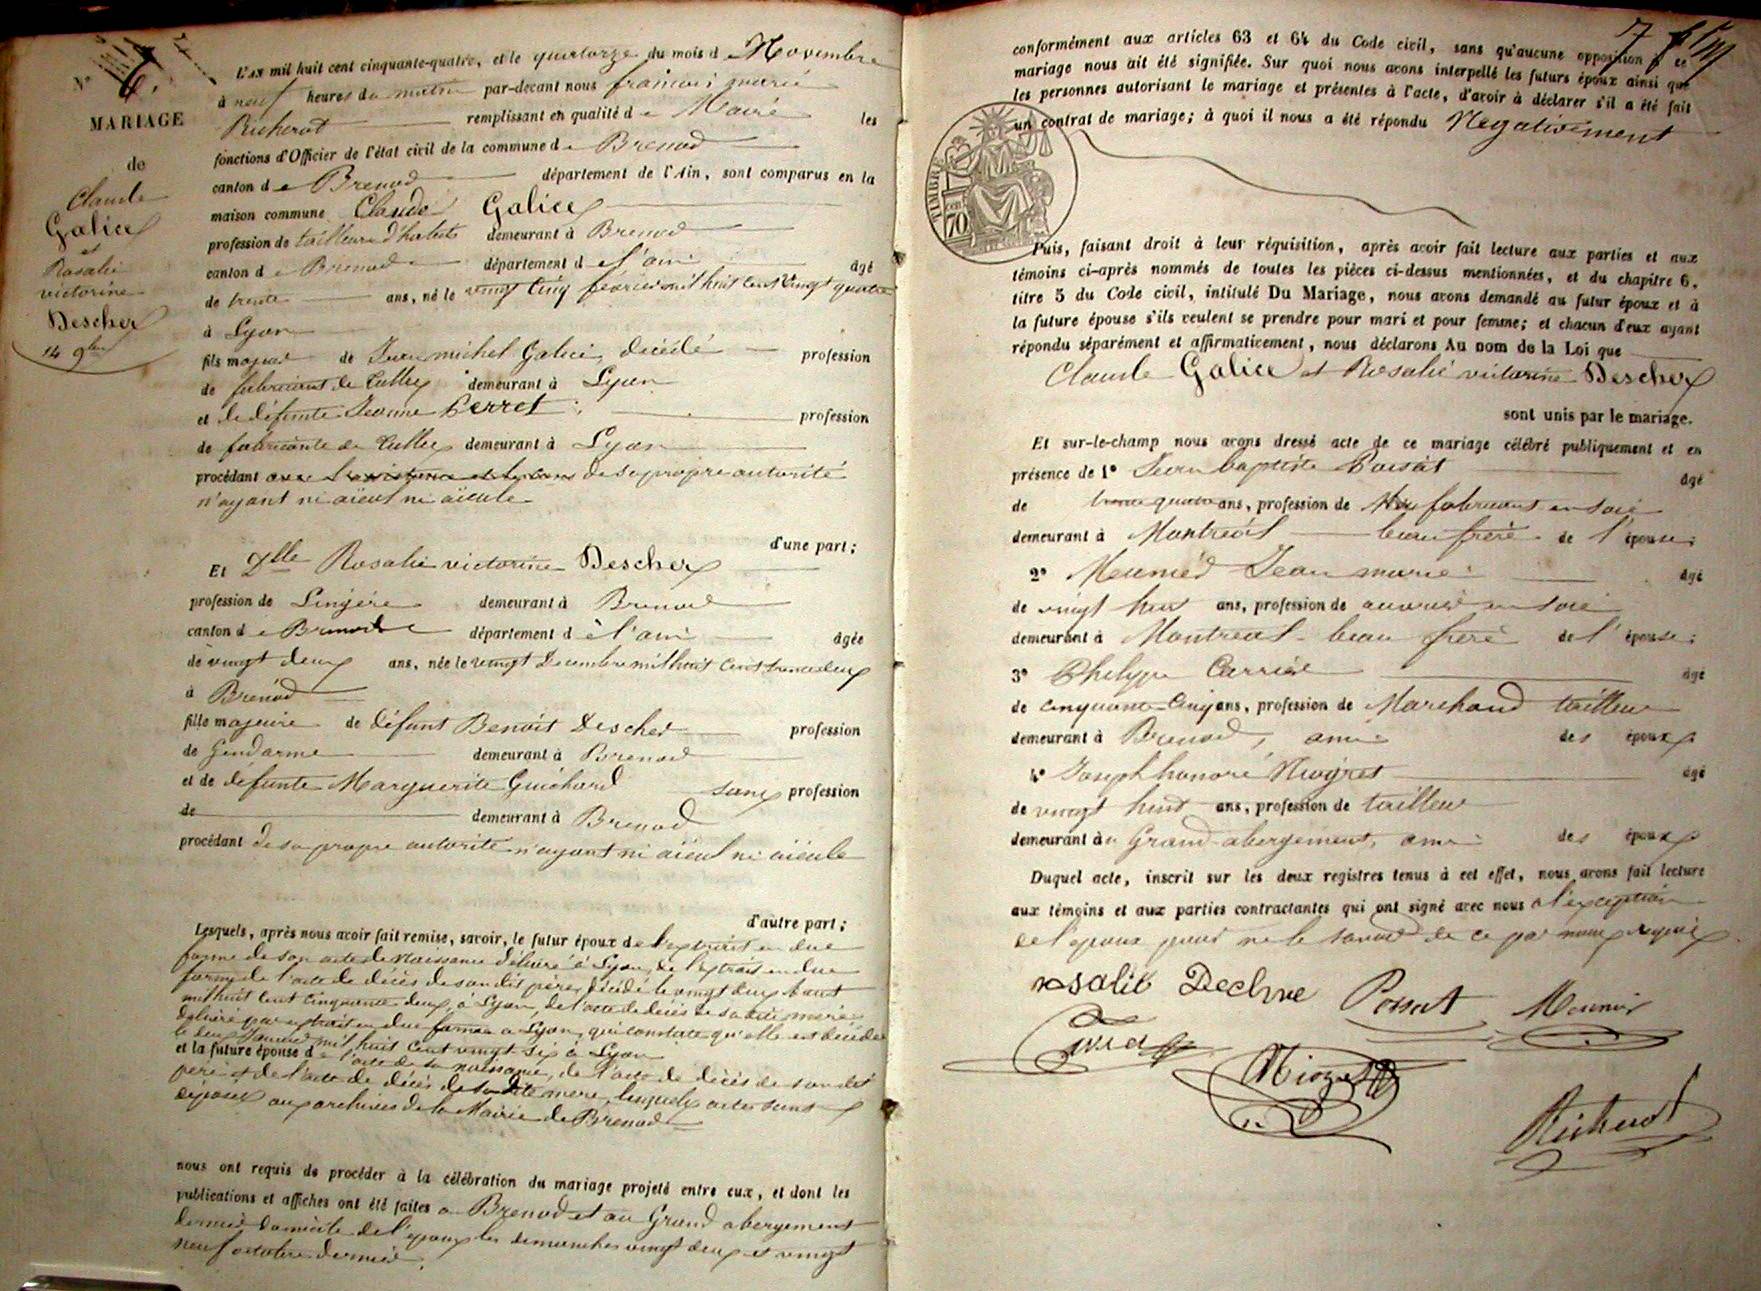 N° 6.
MARIAGE
de
Claude
Galice
et
Rosalie
victorine
Descher
14 9bre
L'AN mil huit cent cinquante-quatre, et le quatorze du mois de Novembre
à neuf heures du matin par-devant nous françois marie
Richerot remplissant en qualité de Maire les
fonctions d'Officier de l'état civil de la commune de Brenod
canton de Brenod département de l'Ain, sont comparus en la
maison commune Claude Galice
profession de tailleur d'habits demeurant à Brenod
canton de Brenod département de l'ain âgé
de trente ans, né le vingt cinq février mil huit cent vingt quatre
à Lyon
fils majeur de Jean michel Galice, décédé profession
de fabricant de tulles demeurant à Lyon
et de défunte Jeanne Perret profession
de fabricante de tulles demeurant à Lyon
procédant de sa propre autorité
n'ayant ni aïeul ni aïeule
d'une part;
Et Dlle Rosalie victorine Descher
profession de Lingère demeurant à Brenod
canton de Brenod département de l'ain âgée
de vingt deux ans, née le vingt Decembre mil huit cent trente deux
à Brenod
fille majeure de défunt Benoit Descher profession
de Gendarme demeurant à Brenod
et de défunte Marguerite Guichard sans profession
de demeurant à Brenod
procédant de sa propre autorité n'ayant ni aïeul ni aïeule
d'autre part;
Lesquels, après nous avoir fait remise, savoir, le futur époux de l'extrait en due
forme de son acte de Naissance délivré à Lyon, de l'extrait en due
forme de l'acte de décès de son dit père, décédé le vingt deux août
mil huit cent cinquante deux, à Lyon, de l'acte de décès de sa dite mère
délivré par extrait en due forme a Lyon, qui constate qu'elle est décédée
le deux Janvier mil huit cent vingt six à Lyon
et la future épouse de l'acte de sa naissance, de l'acte de décès de son dit
père et de l'acte de décès de sa dite mère, lesquels actes sont
déposés aux archives de la Mairie de Brenod
nous ont requis de procéder à la célébration du mariage projeté entre eux, et dont les
publications et affiches ont été faites a Brenod et au Grand abergement
dernier domicile de l'époux les dimanches vingt deux et vingt
neuf octobre dernier.
conformément aux articles 63 et 64 du Code civil, sans qu'aucune opposition à ce
mariage nous ait été signifiée. Sur quoi nous avons interpellé les futurs époux ainsi que
les personnes autorisant le mariage et présentes à l'acte, d'avoir à déclarer s'il a été fait
un contrat de mariage; à quoi il nous a été répondu Negativement
TIMBRE
cen
70
Puis, faisant droit à leur réquisition, après avoir fait lecture aux parties et aux
témoins ci-après nommés de toutes les pièces ci-dessus mentionnées, et du chapitre 6,
titre 5 du Code civil, intitulé Du Mariage, nous avons demandé au futur époux et à
la future épouse s'ils veulent se prendre pour mari et pour femme; et chacun d'eux ayant
répondu séparément et affirmativement, nous déclarons Au nom de la Loi que
Claude Galice et Rosalie victorine Descher
sont unis par le mariage.
Et sur-le-champ nous avons dressé acte de ce mariage célébré publiquement et en
présence de 1° Jean baptiste Possat âgé
de trente quatre ans, profession de fabricant en soie
demeurant à Montreal beau frère de l'épouse;
2° Meunier Jean marie âgé
de vingt huit ans, profession de ouvrier en soie
demeurant à Montreal beau frère de l'épouse;
3° Phelippe Carrier âgé
de cinquante cinq ans, profession de Marchand tailleur
demeurant à Brenod, ami des époux
4° Joseph honoré Niogret âgé
de vingt huit ans, profession de tailleur
demeurant au Grand abergement, ami des époux
Duquel acte, inscrit sur les deux registres tenus à cet effet, nous avons fait lecture
aux témoins et aux parties contractantes qui ont signé avec nous a l'exception
de l'epoux pour ne le savoir de ce par nous requis
rosalie Dechre Possat Meunier
Niogret
Richerot